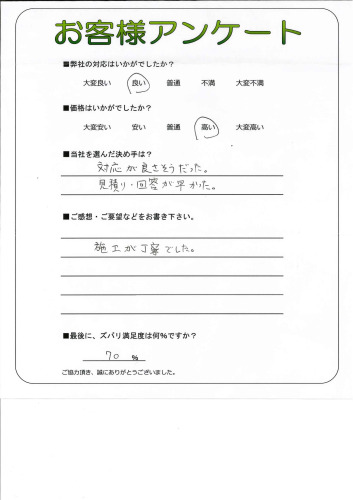 お客様アンケート
■弊社の対応はいかがでしたか?
大変良い 良い 普通 不満 大変不満
■価格はいかがでしたか?
大変安い 安い 普通 高い 大変高い
■当社を選んだ決め手は?
対応が良さそうだった。
見積り・回答が早かった。
■ご感想・ご要望などをお書き下さい。
施工が丁寧でした。
■最後に、ズバリ満足度は何%ですか?
70 %
ご協力頂き、誠にありがとうございました。